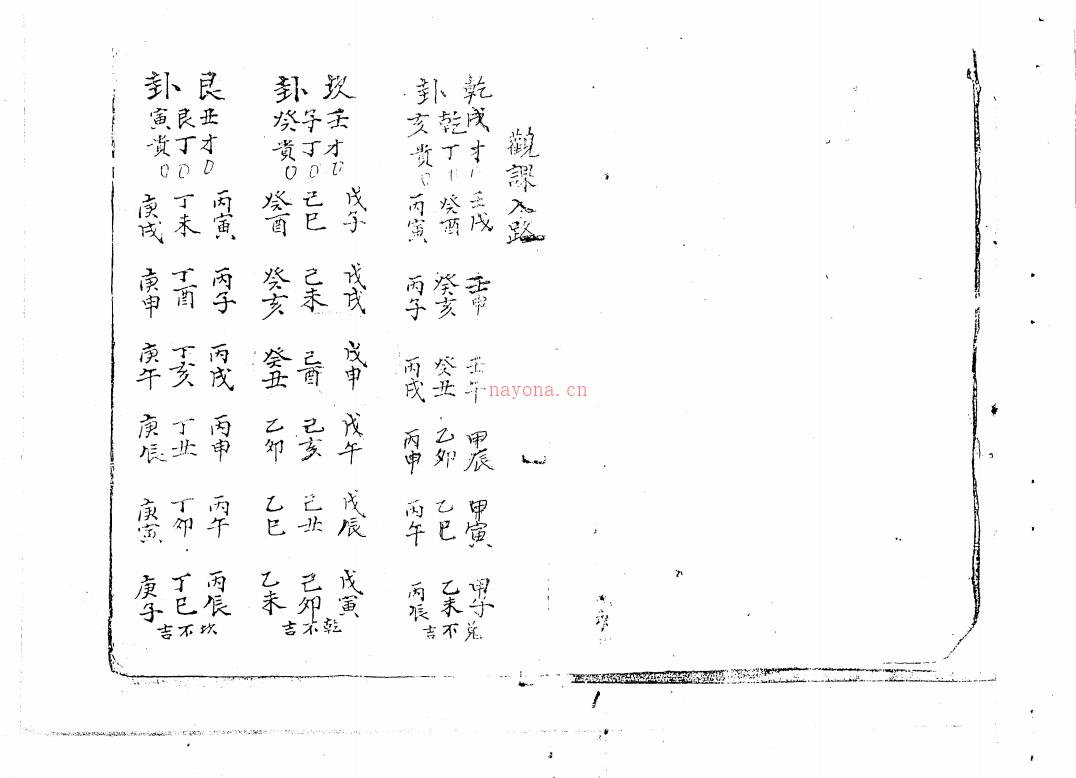 觀課入路
乾卦
戌才 乾丁 亥貴
壬戌 壬申 壬午 甲辰 甲寅 甲子
癸酉 癸亥 癸丑 乙卯 乙巳 乙未
丙寅 丙子 丙戌 丙申 丙午 丙辰
不吉
坎卦
壬才 子丁 癸貴
戊子 戊戌 戊申 戊午 戊辰 戊寅
己巳 己未 己酉 己亥 己丑 己卯
癸酉 癸亥 癸丑 乙卯 乙巳 乙未
乾不吉
艮卦
丑才 艮丁 寅貴
丙寅 丙子 丙戌 丙申 丙午 丙辰
丁未 丁酉 丁亥 丁丑 丁卯 丁巳
庚戌 庚申 庚午 庚辰 庚寅 庚子
坎不吉
nayona.cn